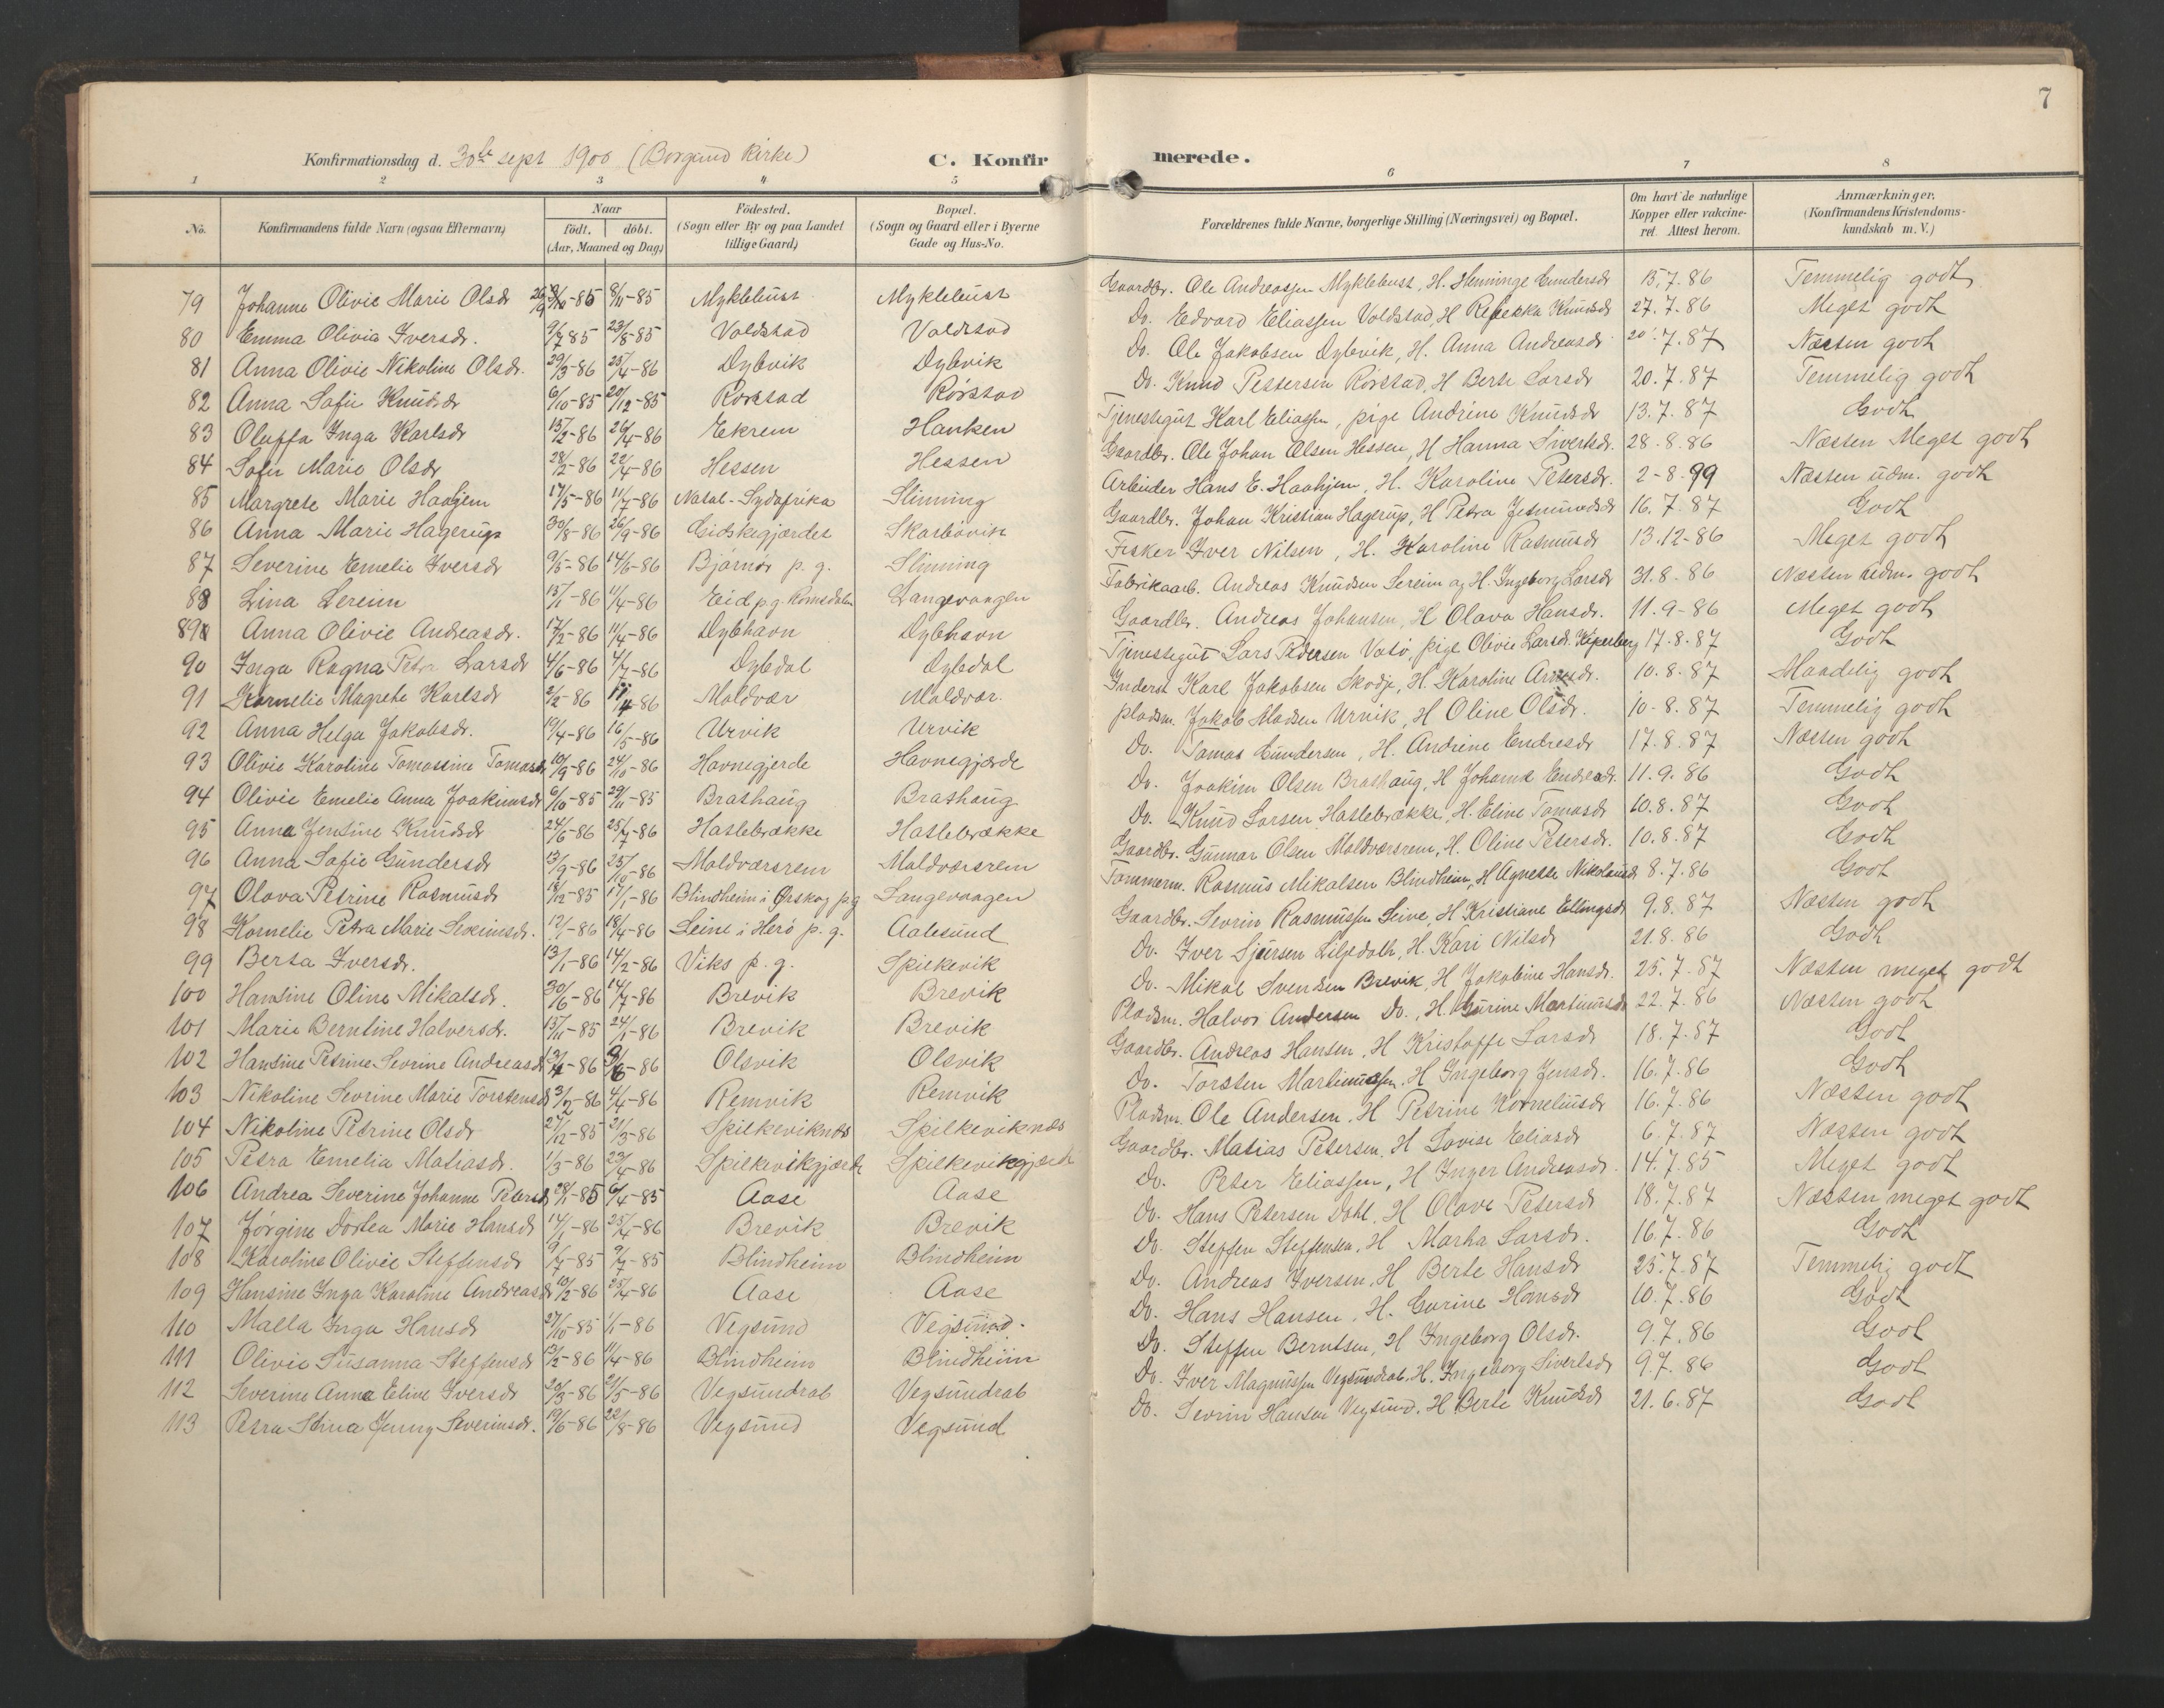 7
Konfirmationsdag d. 30te sept 1900 (Borgund Kirke) C. Konfir merede.
1 2 3 4 5 6 7 8
No. Konfirmandens fulde Navn (ogsaa Efternavn) Naar födt. döbt. (Aar, Maaned og Dag) Födested. (Sogn eller By og paa Landet tillige Gaard) Bopæl. (Sogn og Gaard eller i Byerne Gade og Hus-No. Forældrenes fulde Navne, borgerlige Stilling (Næringsvei) og Bopæl. Om havt de naturlige Kopper eller vakcineret. Attest herom. Anmærkninger. (Konfirmandens Kristendomskundskab m. V.)
79 Johanne Olivie Marie Olsdr 8/11-85 Myklebust Myklebust Gaardbr. Ole Andreassen Myklebust, H. Henninge Gundersdr 15.7.86 Temmelig godt
80 Emma Olivia Iversdr. 9/7 85 23/8-85 Voldstad Voldstad Do. Edvard Eliassen Voldstad, H Rebekka Knudsdr 27.7.86 Meget godt
81 Anna Olivie Nikoline Olsdr. 29/3-86 25/4-86 Dybvik Dybvik Do. Ole Jakobsen Dybvik, H. Anna Andreasdr 20.7.87 Næsten godt
82 Anna Sofie Knudsdr 6/10-85 20/12-85 Rørstad Rørstad Do. Knud Pettersen Rørstad, H Berte Larsdr 20.7.87 Temmelig godt
83 Oluffa Inga Karlsdr 15/2-86 26/4-86 Ekrem Hanken Tjenestegut Karl Eliassen, pige Andrine Knudsdr 13.7.87 Godt
84 Sofie Marie Olsdr 28/2-86 22/4-86 Hessen Hessen Gaardbr. Ole Johan Olsen Hessen, H Hanna Sivertsdr. 28.8.86 Næsten Meget godt
85 Margrete Marie Haahjem 17/5-86 11/7-86 Natal-Sydafrika Slinning Arbeider Hans E. Haahjem, H. Karoline Petersdr. 2-8.99 Næsten udm. godt
86 Anna Marie Hagerup 30/8-86 26/9-86 Gidskegjærdet Skarbøvik Gaardbr. Johan Kristian Hagerup, H Petra Jetmundsdr 16.7.87 Godt
87 Severine Emelie Iversdr 9/5-86 14/6-86 Bjørnør p. g. Slinning Fisker Iver Nilsen, H. Karoline Rasmusdr 13.12-86 Meget godt
88 Lina Lereim 15/1-86 11/4-86 Eid p.g. Romsdalen Langevaagen Fabrikaarb. Andreas Knudsen Lereim og H. Ingeborg Larsdr 31.8.86 Næsten udm. godt
89 Anna Olivie Andreasdr. 17/2-86 11/4-86 Dybhavn Dybhavn Gaardbr. Andreas Johansen, H Olava Hansdr. 11.9-86 Meget godt
90 Inga Ragna Petra Larsdr 4/6-86 4/7-86 Dybdal Dybdal Tjenestegut Lars Pedersen Vatø, pige Olivie Larsdr. Kiperberg 17.8.87 Godt
91 Kornelie Magrete Karlsdr 2/2-86 11/4-86 Moldvær Moldvær. Inderst Karl Jakobsen Skodje, H. Karoline Arnesdr. 10.8.87 Maadelig godt
92 Anna Helga Jakobsdr. 19/4-86 16/5-86 Urvik Urvik pladsm. Jakob Madsen Urvik, H Oline Olsdr. 10-8.87 Temmelig godt
93 Olivie Karoline Tomassine Tomasdr 10/9-86 24/10-86 Havnegjerde Havnegjærde Do. Tomas Gundersen, H. Andrine Endresdr 17.8.87 Næsten godt
94 Olivie Emelie Anna Joakimsdr 6/10-85 29/11-85 Brathaug Brathaug Do. Joakim Olsen Brathaug, H Johanna Endresdr. 11.9.86 Godt
95 Anna Jensine Knudsdr 24/6-86 25/7-86 Hatlebrække Hatlebrække Do. Knud Larsen Hatlebrække, H. Eline Tomasdr 10.8.87 Godt
96 Anna Sofie Gundersdr 13/9-86 25/10-86 Moldværsrem Moldværsrem Gaardbr. Gunnar Olsen Moldværsrem, H. Oline Petersdr. 10.8.87 Godt
97 Olava Petrine Rasmusdr 18/12-85 17/1-86 Blindheim i Ørskog p.g Langevaagen Tømmerm. Rasmus Mikalsen Blindheim, H Agnette Nikolausdr 8.7.86 Godt
98 Kornelie Petra Marie Severinsdr. 12/1-86 18/4-86 Leine i Herø p. g. Aalesund Gaardbr. Sevrin Rasmussen Leine, H Kristiane Ellingsdr 9.8.87 Næsten godt
99 Berta Iversdr. 13/1-86 14/2-86 Viks p. g. Spilkevik Do. Iver Sjursen Liljedalh, H. Kari Nilsdr 21.8.86 Godt
100 Hansine Oline Mikalsdr. 30/6-86 14/7-86 Brevik Brevik Do. Mikal Svendsen Brevik, H Jakobine Hansdr. 25.7.87 Næsten meget godt
101 Marie Berntine Halversdr. 15/11-85 24/1-86 Brevik Brevik Pladsm. Halvor Andersen Do., H. Gurine Martinusdr 22.7.86 Næsten godt
102 Hansine Petrine Sevrine Andreasdr -86 -86 Olsvik Olsvik Gaardbr. Andreas Hansen, H Kristoffe Larsdr 18.7.87 Godt
103 Nikoline Sevrine Marie Torstensdr 3/2-86 4/4-86 Remvik Remvik Do. Torsten Martinussen, H Ingeborg Jensdr. 16.7.86 Godt
104 Nikoline Petrine Olsdr 27/12-85 21/3-86 Spilkeviknes Spilkeviknes Pladsm. Ole Andersen, H Petrine Korneliusdr 16.7.86 Næsten godt
105 Petra Emelia Matiasdr. 1/3-86 23/4-86 Spilkevikgjærde Spilkevikgjærde Gaardbr. Matias Petersen, H Lovise Eliasdr 6.7.87 Næsten godt
106 Andrea Severine Johanne Petersdr 28/1-85 6/4-85 Aase Aase Do. Peter Eliassen, H Inger Andreasdr. 14.7.85 Meget godt
107 Jørgine Dortea Marie Hansdr 14/1-86 25/4-86 Brevik Brevik Do. Hans Petersen Dahl, H Olave Petersdr 18.7.87 Næsten meget godt
108 Karoline Olivie Steffensdr 9/7-85 9/7-85 Blindheim Blindheim Do. Steffen Steffensen, H Marta Larsdr. 16.7.86 Godt
109 Hansine Inga Karoline Andreasdr 10/2-86 25/4-86 Aase Aase Do. Andreas Iversen, H Berte Hansdr 25.7.87 Temmelig godt
110 Malla Inga Hansdr 27/10-85 1/1-86 Vegsund Vegsund. Do. Hans Hansen, H. Gurine Hansdr 10.7.86 Godt
111 Olivie Susanna Steffensdr 13/2-86 11/4-86 Blindheim Blindheim Do. Steffen Berntsen, H Ingeborg Olsdr. 9.7.86 Godt
112 Severine Anna Eline Iversdr 20/3-86 21/5-86 Vegsundrab Vegsundrab Do. Iver Magnussen Vegsundrab, H. Ingeborg Sivertsdr 9.7.86 Godt
113 Petra Stina Jenny Severinsdr. 19/6-86 22/8-86 Vegsund Vegsund Do. Sevrin Hansen Vegsund, H Berte Knudsdr 21.6.87 Godt